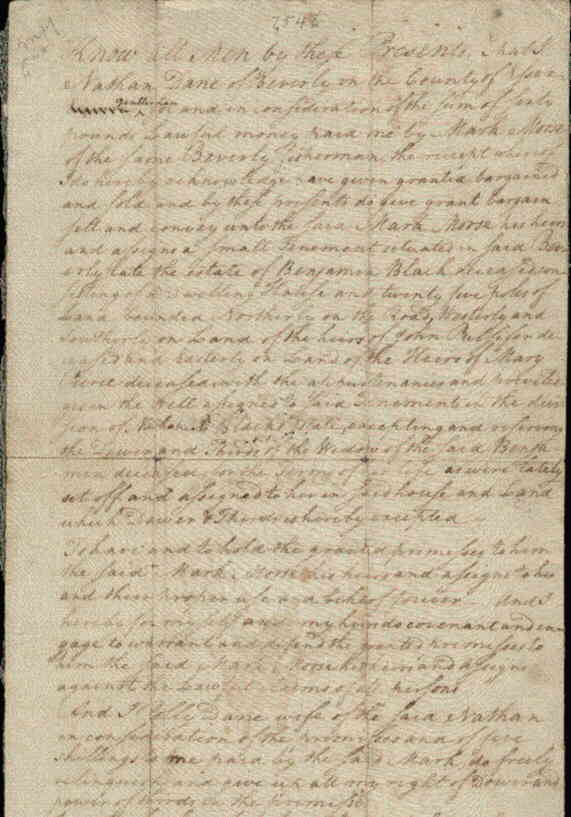 7546
Know all Men by these Presents, That I
Nathan Dane of Beverly in the County of Essex
gentleman
for and in consideration of the sum of sixty
pounds Lawful money paid me by Mark Morse
of the same Beverly fisherman, the receipt whereof
I do hereby acknowledge have given granted bargained
and sold and by these presents do give grant bargain
sell and convey unto the said Mark Morse his heirs
and assigns a small Tenement situated in said Bev
erly late the estate of Benjamin Black deceased con
sisting of a Dwelling House and twenty five poles of
Land bounded Northerly on the Road, Westerly and
Southerly on Land of the heirs of John de
ceased and Easterly on Land of the Heirs of Mary
Pierce deceased with the appurtenances and privileges
in the Well assigned to said Tenement in the divi
sion of Black's Estate, excepting and reserving
the Dower and Thirds of the Widow of the said Benja
min deceased for the term of her life as were lately
set off and assigned to her in said house and Land
which Dower & Thirds is hereby excepted
To have and to hold the granted premises to him
the said Mark Morse his heirs and assigns to his
and their proper use and behoof forever. And I
hereby for myself and my heirs covenant and en
gage to warrant and defend the granted premises to
him the said Mark Morse his heirs and assigns
against the Lawful claims of all persons
And I Polly Dane wife of the said Nathan
in consideration of the premises and of five
shillings to me paid by the said Mark do freely
relinquish and give up all my right of Dower and
power of thirds in the premises